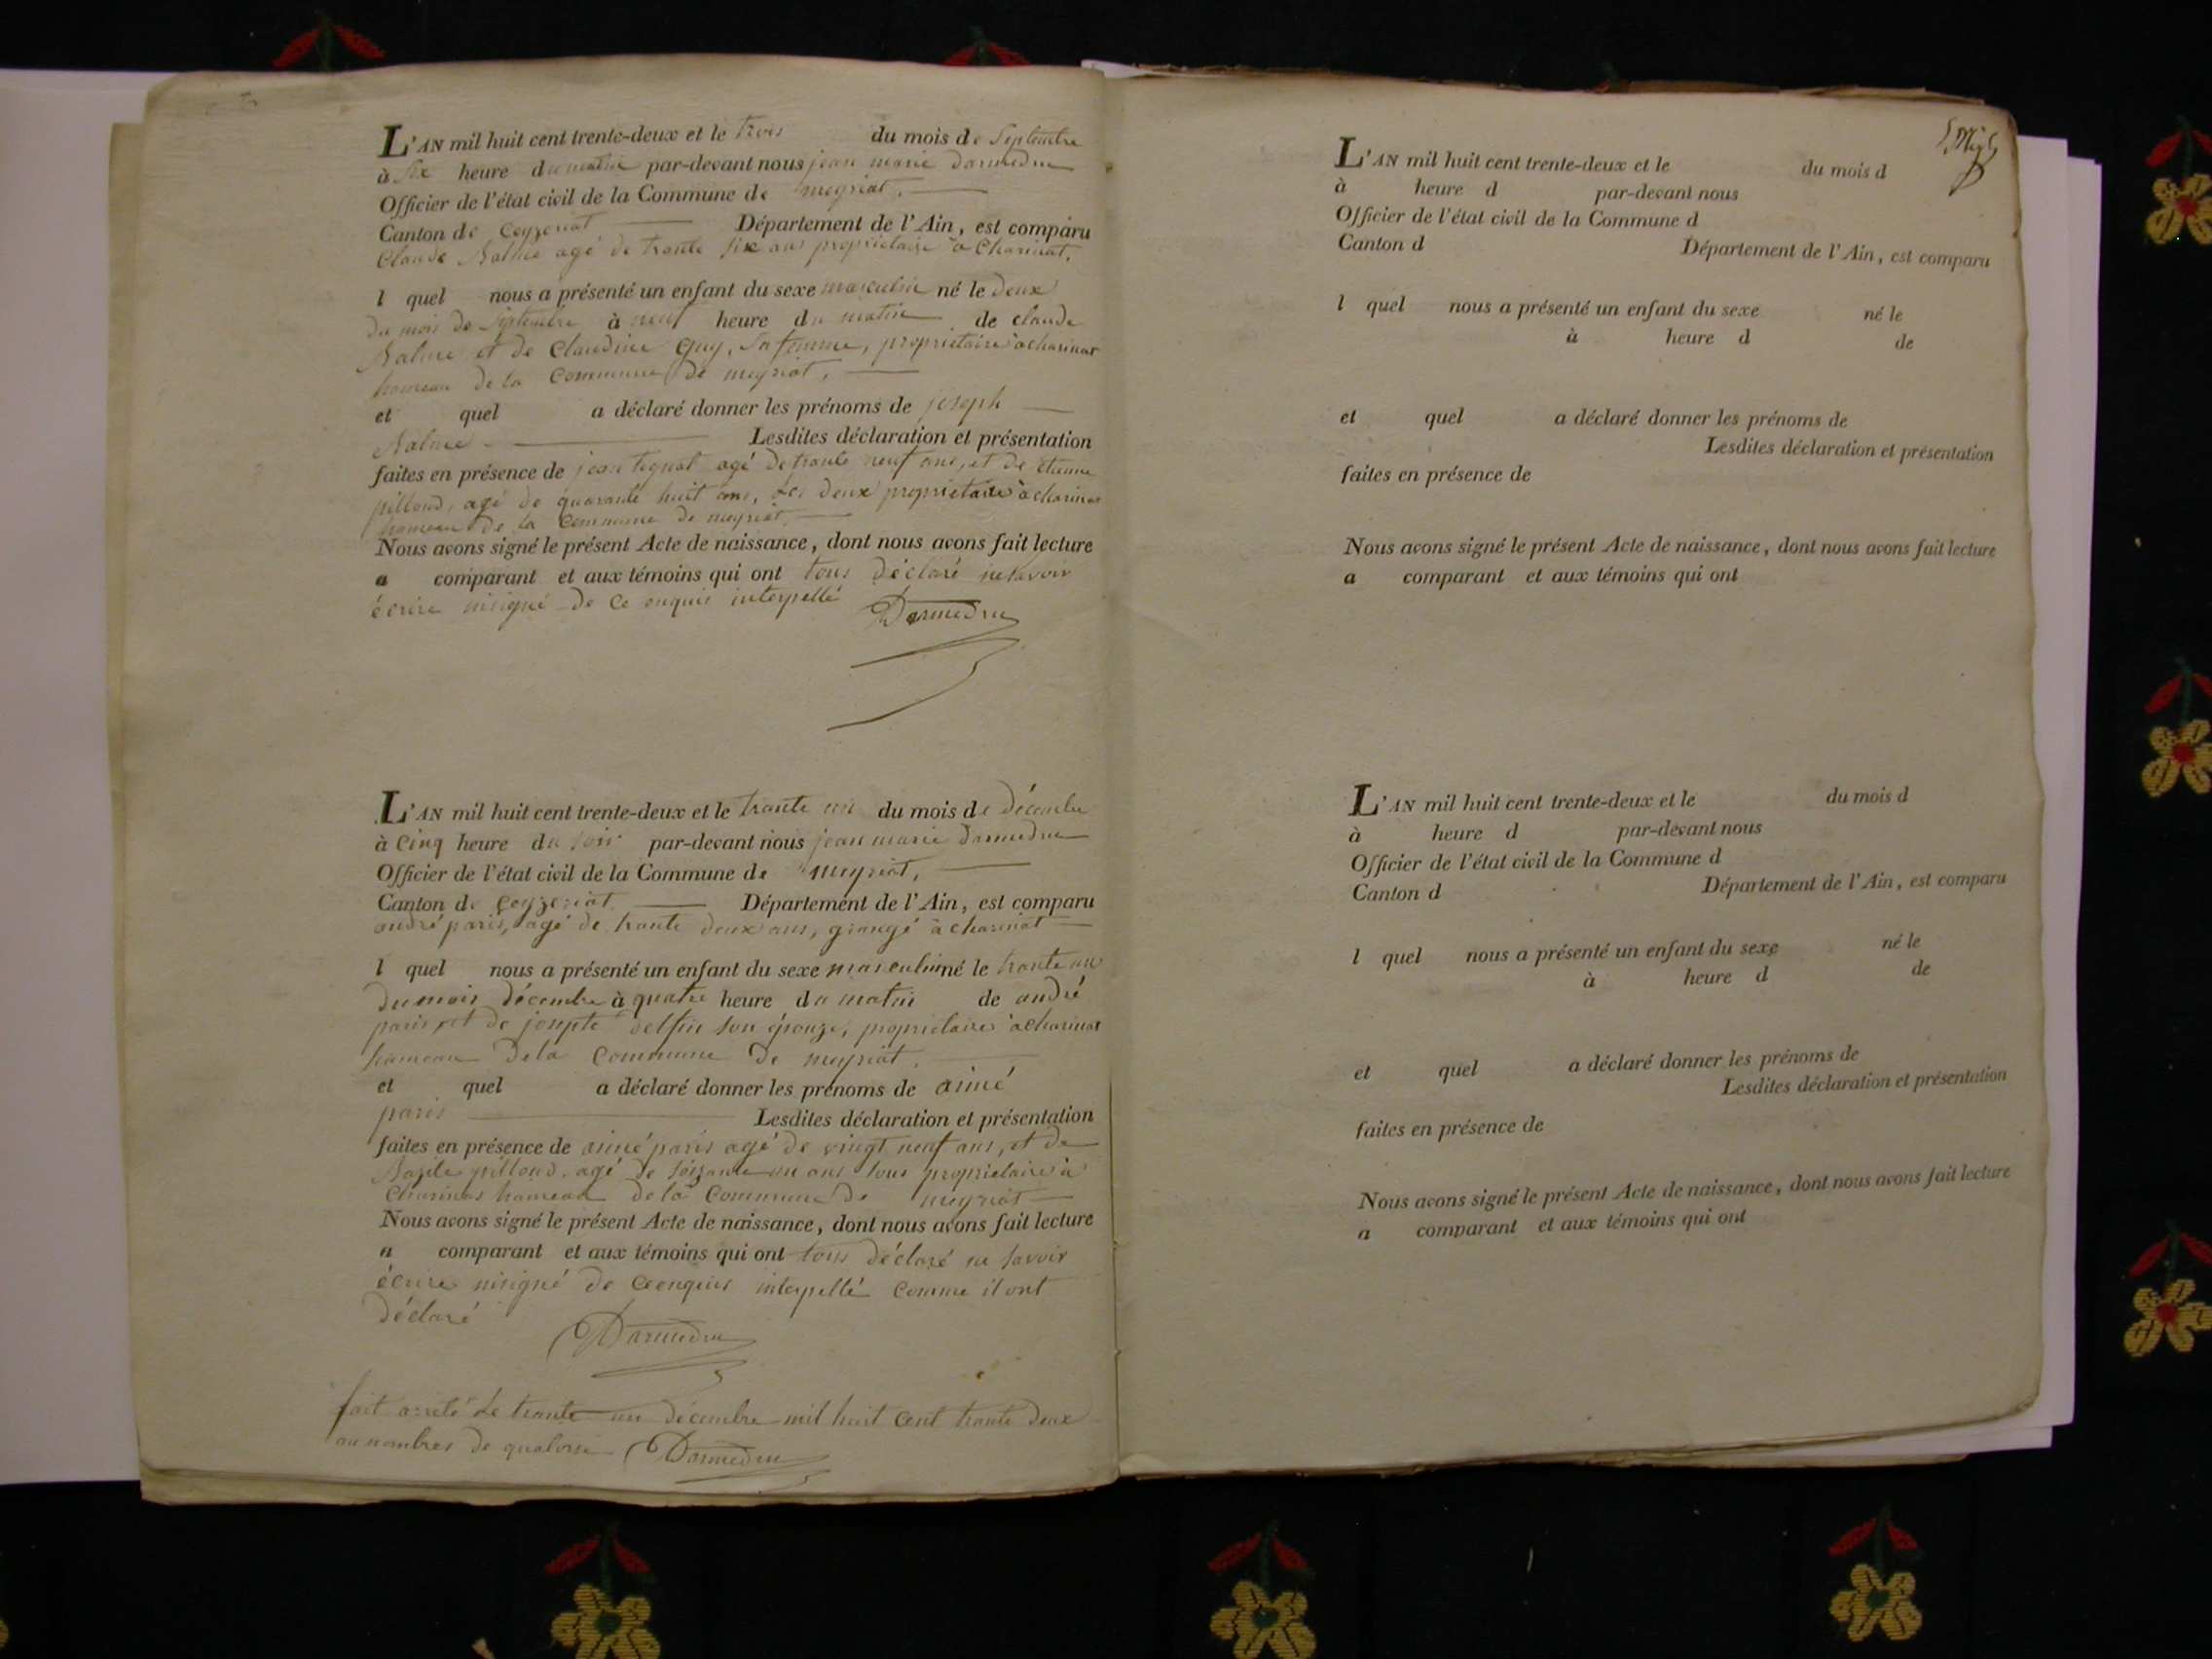 L'AN mil huit cent trente-deux et le trois du mois de Septembre
à Six heure du matin par-devant nous jean marie darmedru
Officier de l'état civil de la Commune de meyriat,
Canton de Ceyzeriat Département de l'Ain, est comparu
Claude agé de trante six ans propriétaire à Charinat,
l quel nous a présenté un enfant du sexe masculin né le deux
du mois de Septembre à neuf heure du matin de claude
et de claudine Guy, Sa femme, proprietaire à charinat
hameau de la Commune de meyriat,
et quel a déclaré donner les prénoms de joseph
Lesdites déclaration et présentation
faites en présence de jean agé de trante neuf ans, et de étienne
pilloud, agé de quarante huit ans, Les deux proprietaire à charinat
hameau de la Commune de meyriat
Nous avons signé le présent Acte de naissance, dont nous avons fait lecture
a comparant et aux témoins qui ont tous déclaré ne savoir
écrire nisigné de ce enquis interpellé Darmedru
L'AN mil huit cent trente-deux et le trante un du mois de décembre
à Cinq heure du soir par-devant nous jean marie darmedru
Officier de l'état civil de la Commune de meyriat,
Canton de Ceyzeriat Département de l'Ain, est comparu
andré paris, agé de trante deux ans, grangé à charinat
l quel nous a présenté un enfant du sexe masculin né le trante un
du mois décembre à quatre heure du matin de andré
paris et de josepte delfin son épouze, proprietaire à charinat
hameau dela Commune de meyriat.
et quel a déclaré donner les prénoms de aimé
paris Lesdites déclaration et présentation
faites en présence de aimé paris agé de vingt neuf ans, et de
pilloud, agé de soizante un ans tous proprietaire à
Charinas hameau dela Commune de meyriat
Nous avons signé le présent Acte de naissance, dont nous avons fait lecture
a comparant et aux témoins qui ont tous déclaré ne savoir
écrire nisigné de ceenquis interpellé Comme il ont
déclaré
Darmedru
fait arreté Le trante un décembre mil huit Cent trante deux
au nombres de quatorse Darmedru
L'AN mil huit cent trente-deux et le du mois d
à heure d par-devant nous
Officier de l'état civil de la Commune d
Canton d Département de l'Ain, est comparu
l quel nous a présenté un enfant du sexe né le
à heure d de
et quel a déclaré donner les prénoms de
Lesdites déclaration et présentation
faites en présence de
Nous avons signé le présent Acte de naissance, dont nous avons fait lecture
a comparant et aux témoins qui ont
L'AN mil huit cent trente-deux et le du mois d
à heure d par-devant nous
Officier de l'état civil de la Commune d
Canton d Département de l'Ain, est comparu
l quel nous a présenté un enfant du sexe né le
à heure d de
et quel a déclaré donner les prénoms de
Lesdites déclaration et présentation
faites en présence de
Nous avons signé le présent Acte de naissance, dont nous avons fait lecture
a comparant et aux témoins qui ont